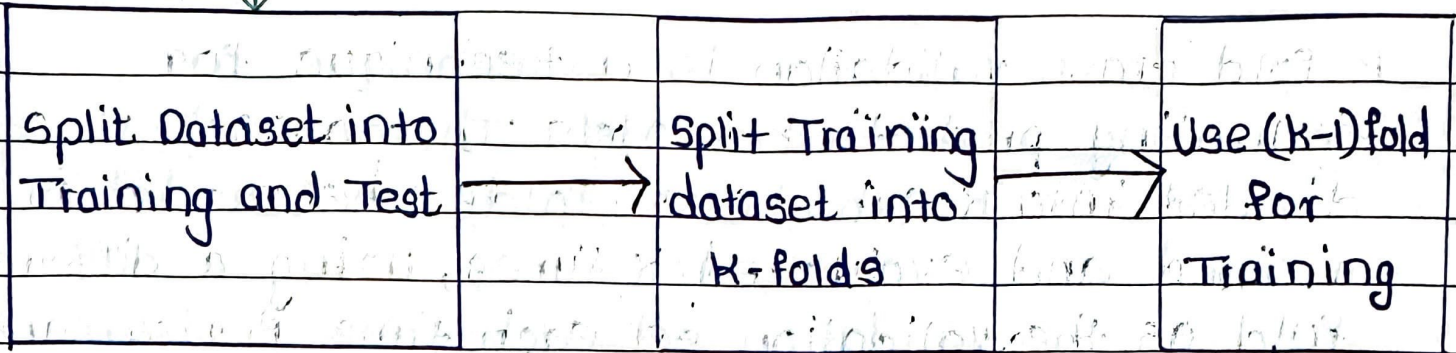 Split Dataset into
Training and Test
Split Training
dataset into
K-folds
Use (K-1) fold
for
Training